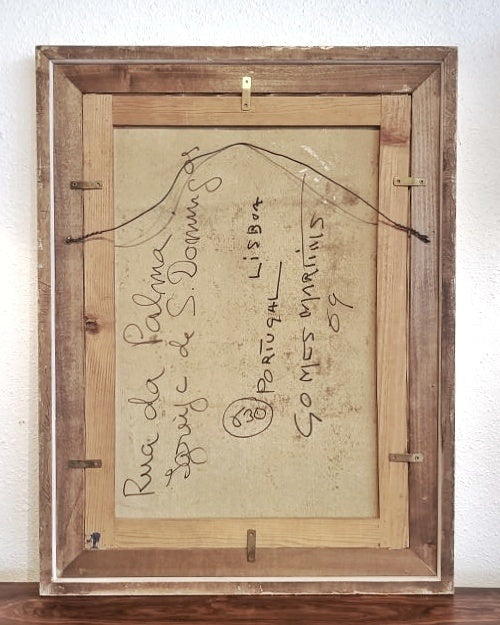 Rua da Palma
Igreja de S. Domingos
PORTUGAL LISBOA
GOMES MARTINS
09